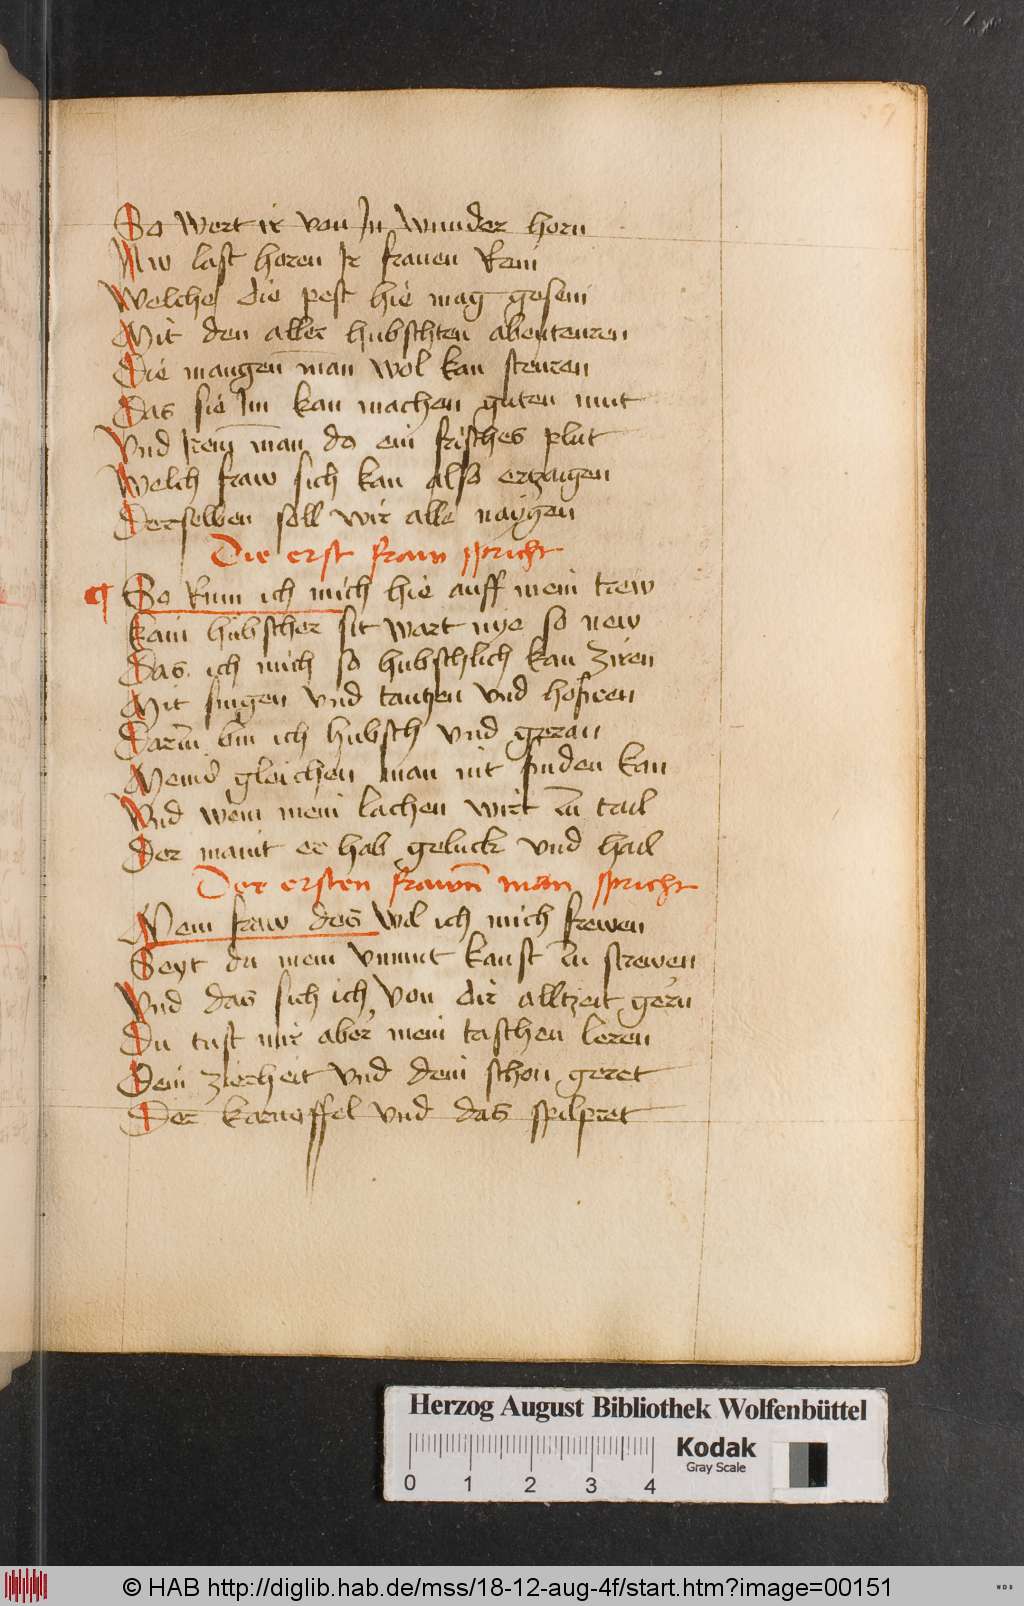 39
So wert ir von In wunder horn
Nw last horen Ir frauen Rein
Welche die pest hie mag gesein
Mit den aller hubschten abenteuren
Die mangen man wol kan steuren
Das sie Im kan machen guten mut
Vnd Irem man do ein frisches plut
Welch fraw sich kan also erzaigen
Derselben soll wir alle naygen
Die erst fraw spricht
¶ So Rum ich mich hie auff mein trew
kain hubscher sit wart nye so new
Das ich mich so hubschlich kan ziren
Mit singen vnd tantzen vnd hofiren
Darin bin ich hubsch vnd geran
Meins gleichen man nit finden kan
Vnd wem mein lachen wirt zu tail
Der maint er hab geluck vnd hail
Der ersten frawen man spricht
Mein fraw des wil ich mich frewen
Seyt du mein vnmut kanst zu strewen
Vnd das sich ich von dir alltzeit gern
Du tust mir aber mein taschen leren
Dein zierheit vnd dein schon geret
Der karnoffel vnd das spilpret
Herzog August Bibliothek Wolfenbüttel
0 1 2 3 4
Kodak
Gray Scale
© HAB http://diglib.hab.de/mss/18-12-aug-4f/start.htm?image=00151